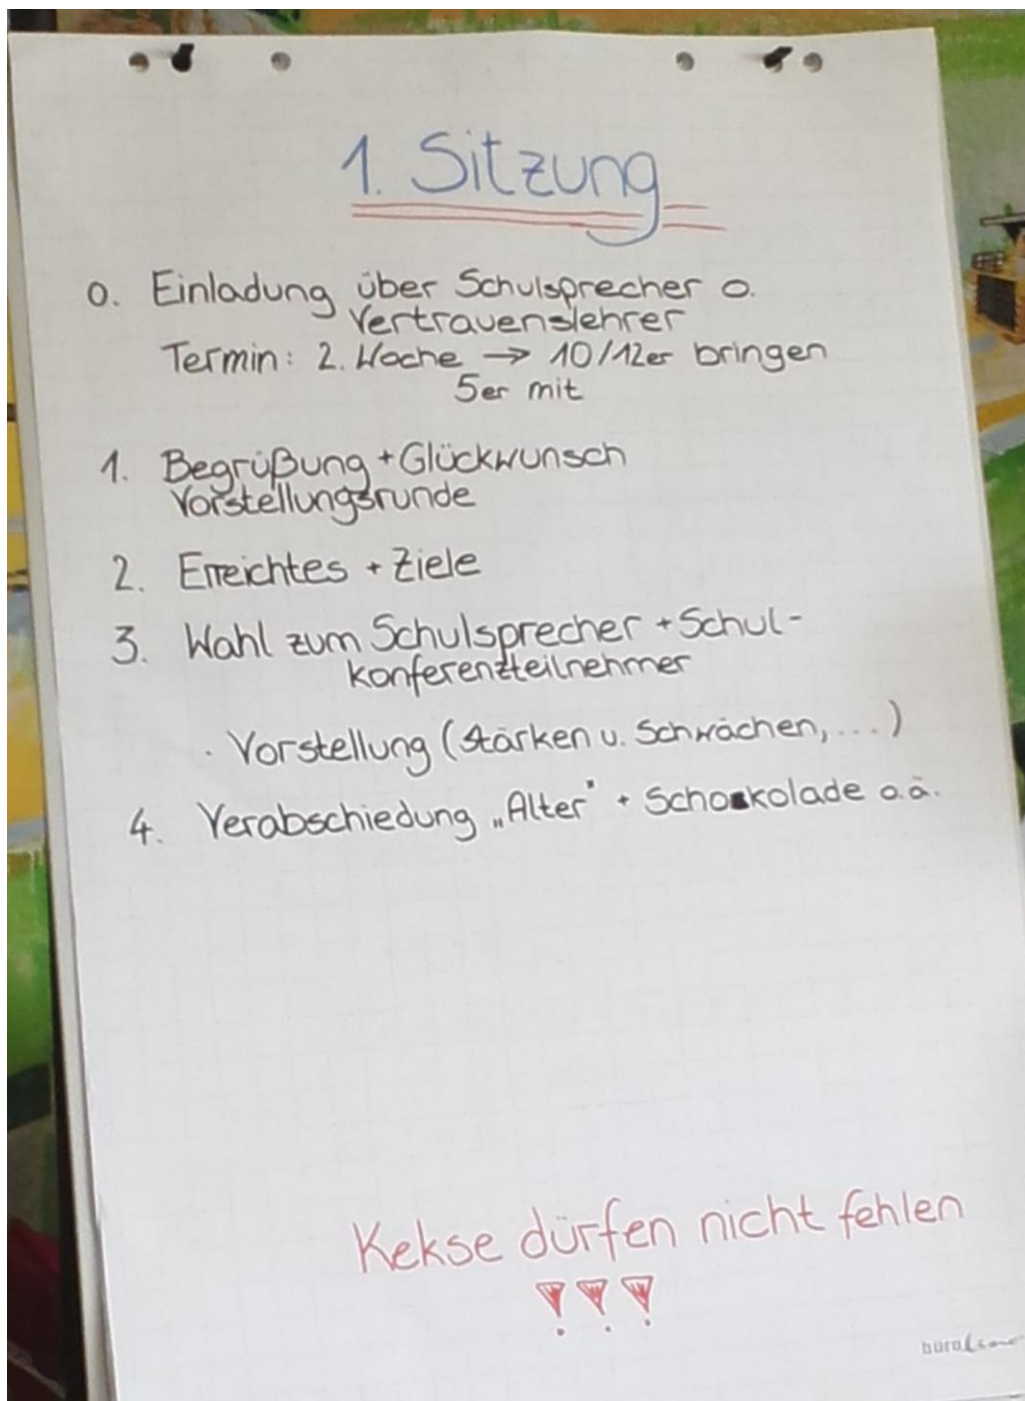 1. Sitzung
0. Einladung über Schulsprecher o.
Vertrauenslehrer
Termin: 2. Woche → 10/12er bringen
5er mit
1. Begrüßung + Glückwunsch
Vorstellungsrunde
2. Erreichtes + Ziele
3. Wahl zum Schulsprecher + Schul-
konferenzteilnehmer
· Vorstellung (Stärken u. Schwächen, ...)
4. Verabschiedung „Alter" + Schokolade o.ä.
Kekse dürfen nicht fehlen
!!!